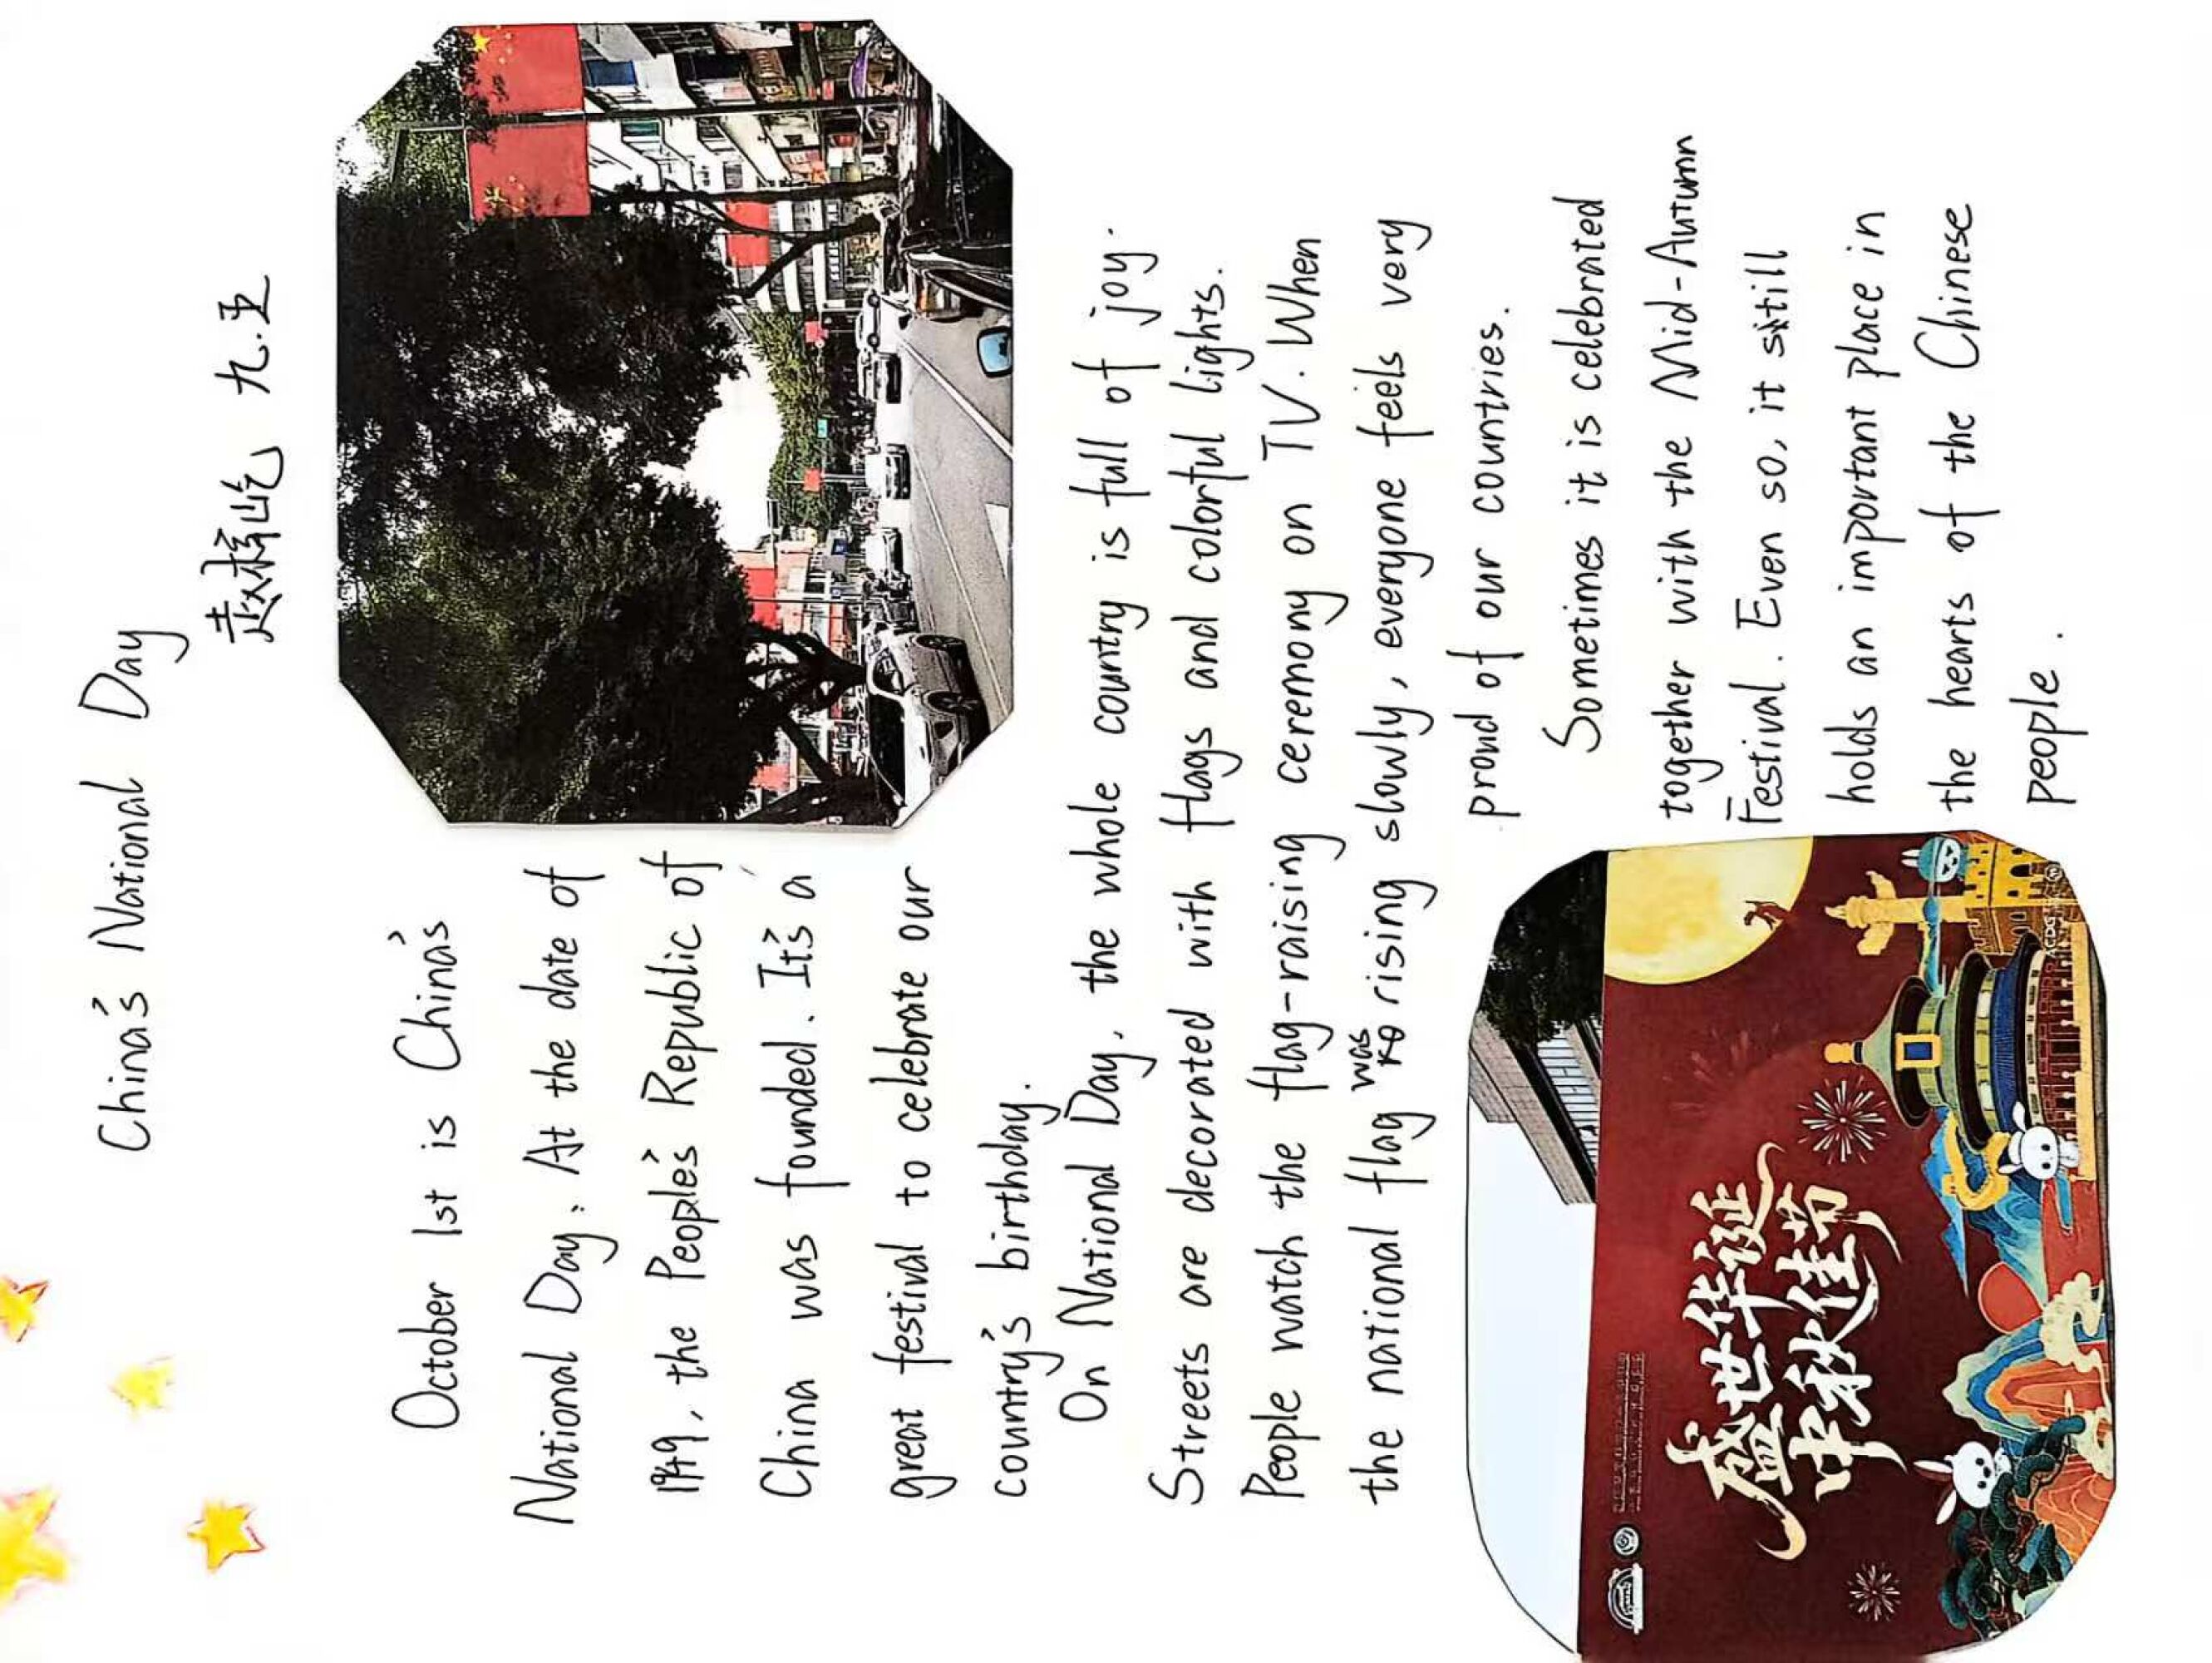 China's National Day
赵梓屹 九.五
October 1st is China's
National Day. At the date of
1949, the People's Republic of
China was founded. It's a
great festival to celebrate our
country's birthday.
On National Day, the whole country is full of joy.
Streets are decorated with flags and colorful lights.
People watch the flag-raising ceremony on TV. When
the national flag was rising slowly, everyone feels very
proud of our countries.
Sometimes it is celebrated
together with the Mid-Autumn
Festival. Even so, it still
holds an important place in
the hearts of the Chinese
people.
盛世华诞
中秋佳节